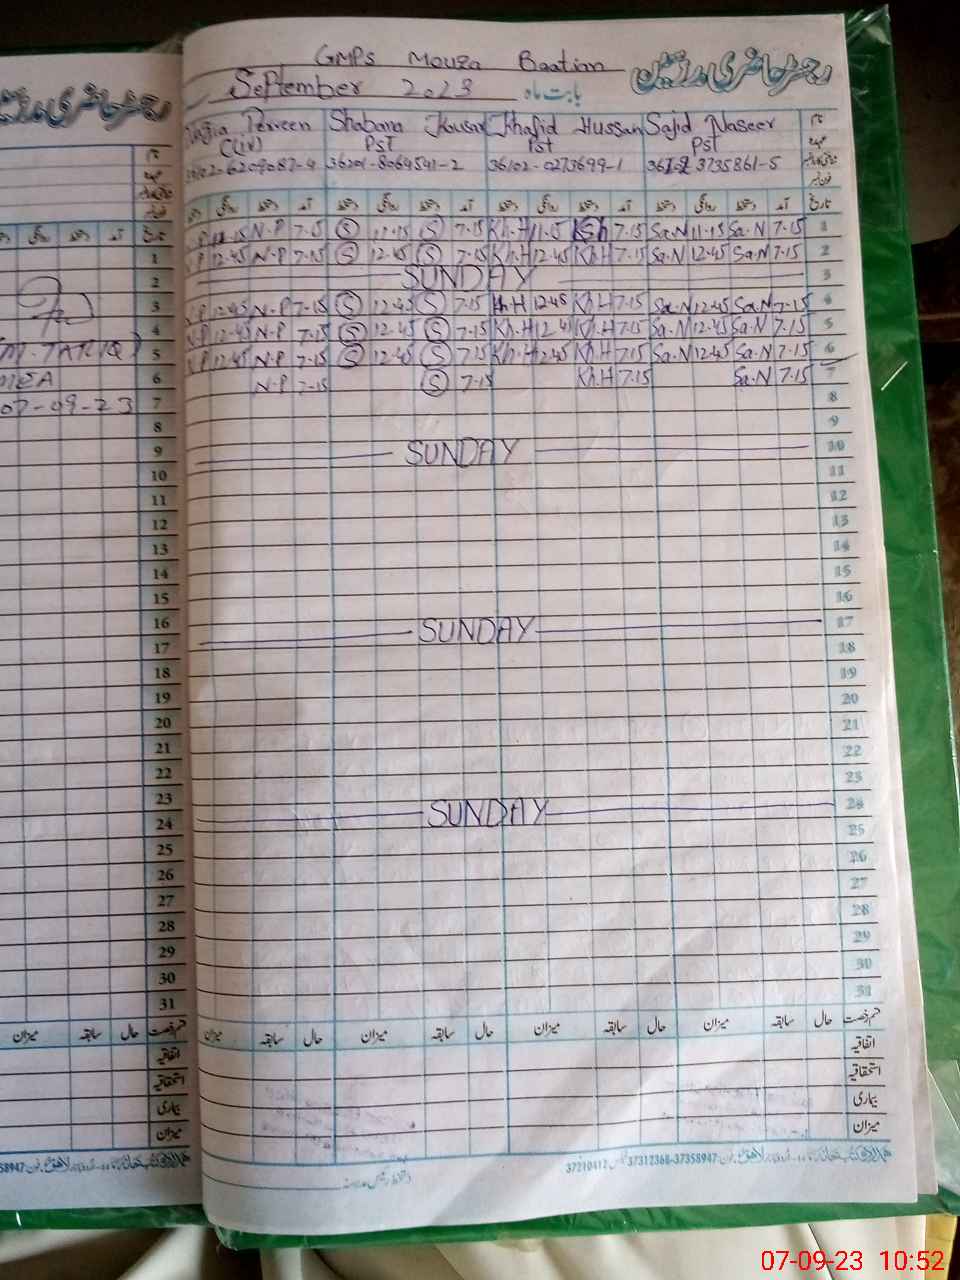 GMPS Mouza Baatian
رجسٹر حاضری مدرسین
September 2023 بابت ماہ
Perveen Shabana Kousar Khalid Hussan Sajid Naseer نام
C(IV) PST Pst Pst عہدہ
36102-6209087-4 36201-8064541-2 36102-0273699-1 3735861-5
روانگی دستخط آمد دستخط روانگی دستخط آمد دستخط روانگی دستخط آمد دستخط روانگی دستخط آمد تاریخ
11-15 N-P 7-15 S 11-15 S 7-15 Kh.H 11-15 7-15 Sa.N 11-15 Sa.N 7-15 1
12-45 N-P 7-15 S 12-45 S 7-15 Kh.H 12-45 Kh.H 7-15 Sa.N 12-45 Sa.N 7-15 2
SUNDAY 3
12-45 N-P 7-15 S 12-45 S 7-15 Kh.H 12-45 Kh.H 7-15 Sa.N 12-45 Sa.N 7-15 4
12-45 N-P 7-15 S 12-45 S 7-15 Kh.H 12-45 Kh.H 7-15 Sa.N 12-45 Sa.N 7-15 5
12-45 N-P 7-15 S 12-45 S 7-15 Kh.H 12-45 Kh.H 7-15 Sa.N 12-45 Sa.N 7-15 6
N-P 7-15 S 7-15 Kh.H 7-15 Sa.N 7-15 7
8
9
SUNDAY 10
11
12
13
14
15
16
SUNDAY 17
18
19
20
21
22
23
SUNDAY 24
25
26
27
28
29
30
31
میزان سابقہ حال میزان سابقہ حال میزان سابقہ حال میزان سابقہ حال قسم رخصت
اتفاقیہ
استحقاقیہ
بیماری
میزان
37210412 37312368-37358947
آمد تاریخ
1
2
3
4
(M.TARIQ) 5
MEA 6
07-09-23 7
8
9
10
11
12
13
14
15
16
17
18
19
20
21
22
23
24
25
26
27
28
29
30
31
میزان سابقہ حال قسم رخصت
اتفاقیہ
استحقاقیہ
بیماری
میزان
07-09-23 10:52